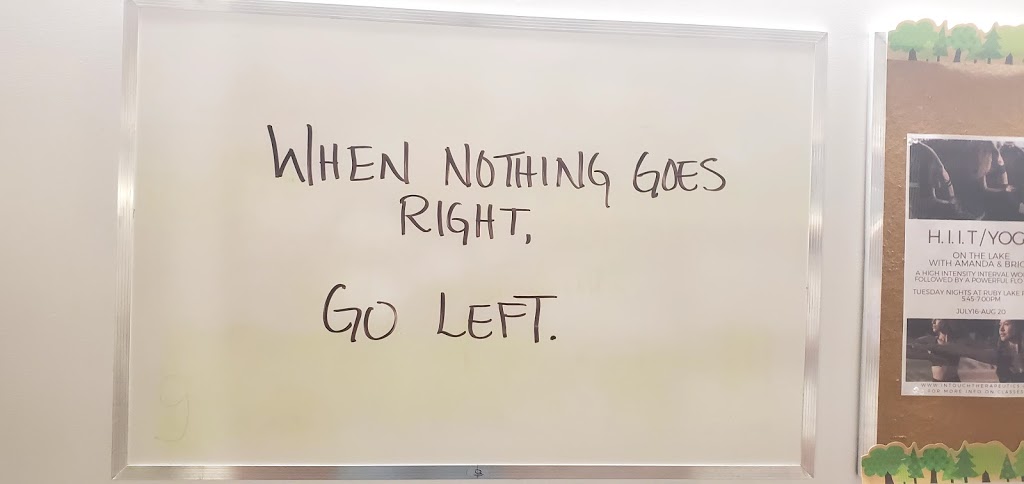 WHEN NOTHING GOES
RIGHT,
GO LEFT.
H.I.I.T/YOG
ON THE LAKE
WITH AMANDA & BRI
A HIGH INTENSITY INTERVAL WO
FOLLOWED BY A POWERFUL FLO
TUESDAY NIGHTS AT RUBY LAKE
5:45-7:00PM
JULY16-AUG 20
WWW.INTOUCHTHERAPEUTICS
FOR MORE INFO ON CLASSES